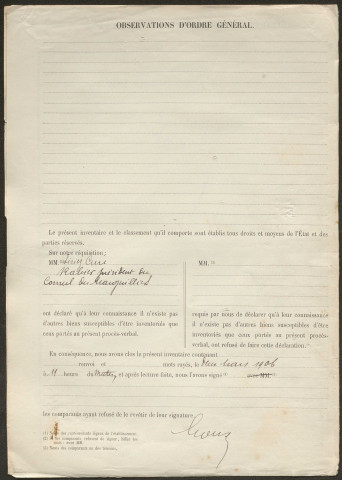 OBSERVATIONS D'ORDRE GÉNÉRAL.
Le présent inventaire et le classement qu'il comporte sont établis tous droits et moyens de l'État et des
parties réservés.
Sur notre réquisition,
MM.
président du
Conseil de
ont déclaré qu'à leur connaissance il n'existe
pas d'autres biens susceptibles d'être inventoriés
que ceux portés au présent procès-verbal.
MM.
requis par nous de déclarer qu'à leur connaissance
il n'existe pas d'autres biens susceptibles d'être
inventoriés que ceux portés au présent procès-
verbal, ont refusé de faire cette déclaration.
En conséquence, nous avons clos le présent inventaire contenant
renvoi et mots rayés, le mars 1906
à 11 heures du matin, et après lecture faite, nous l'avons signé avec MM.
les comparants ayant refusé de le revêtir de leur signature.
(1) Noms des représentants légaux de l'établissement.
(2) Si les comparants refusent de signer, biffer les
mots : avec MM.
(3) Noms des comparants ou des témoins.